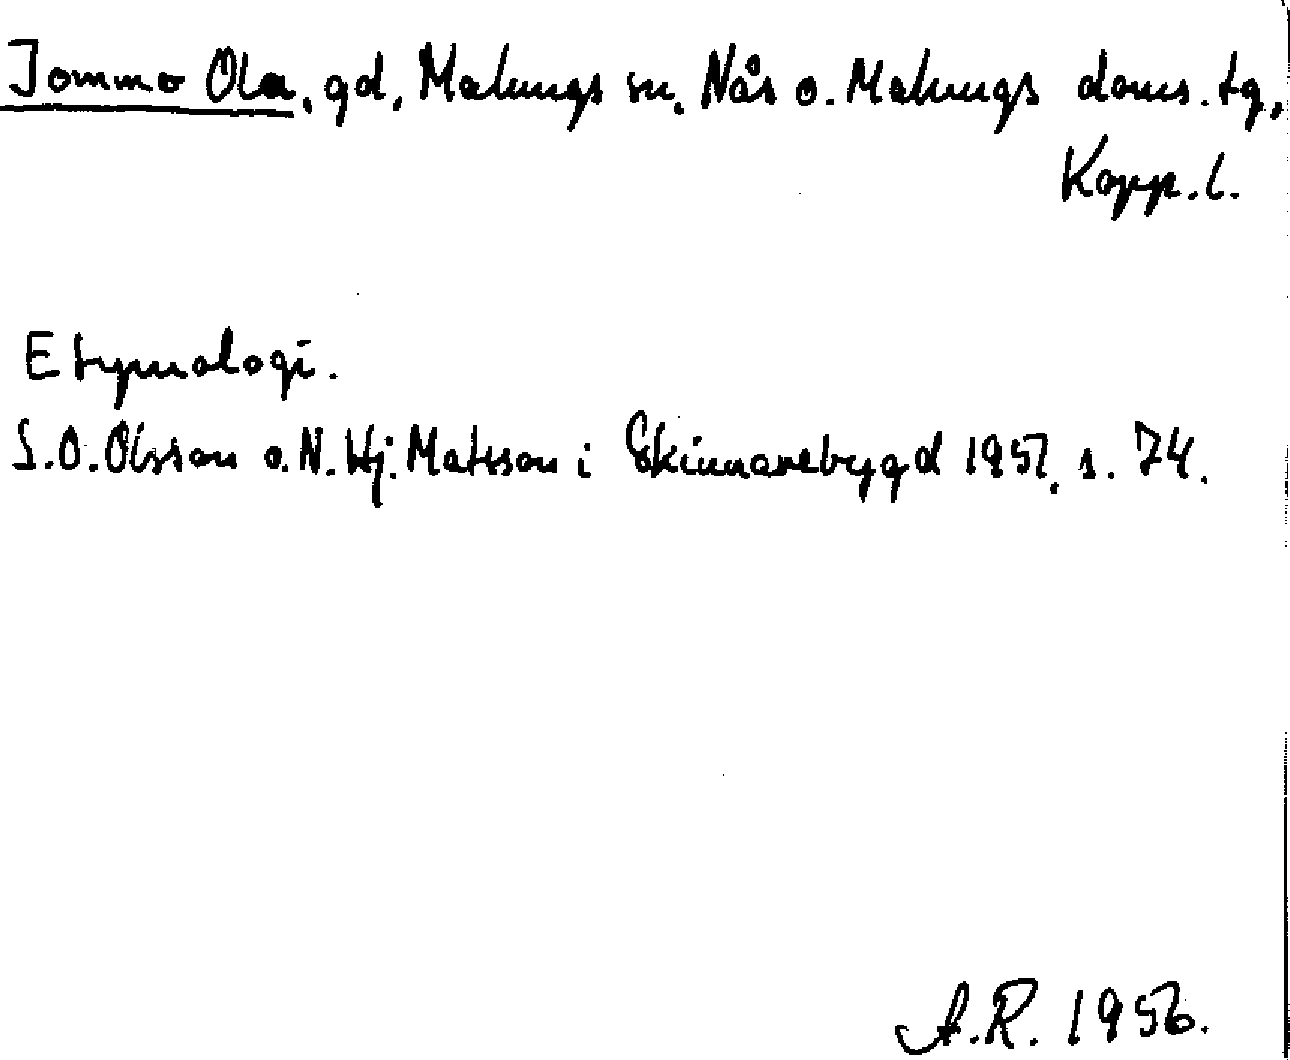 Jommo Ola, gd, Malungs sn, Nås o. Malungs doms. tg,
Kopp. l.
Etymologi.
S. O. Olsson o. N. Hj. Matsson i Skinnarebygd 1951, s. 74.
A.R. 1956.